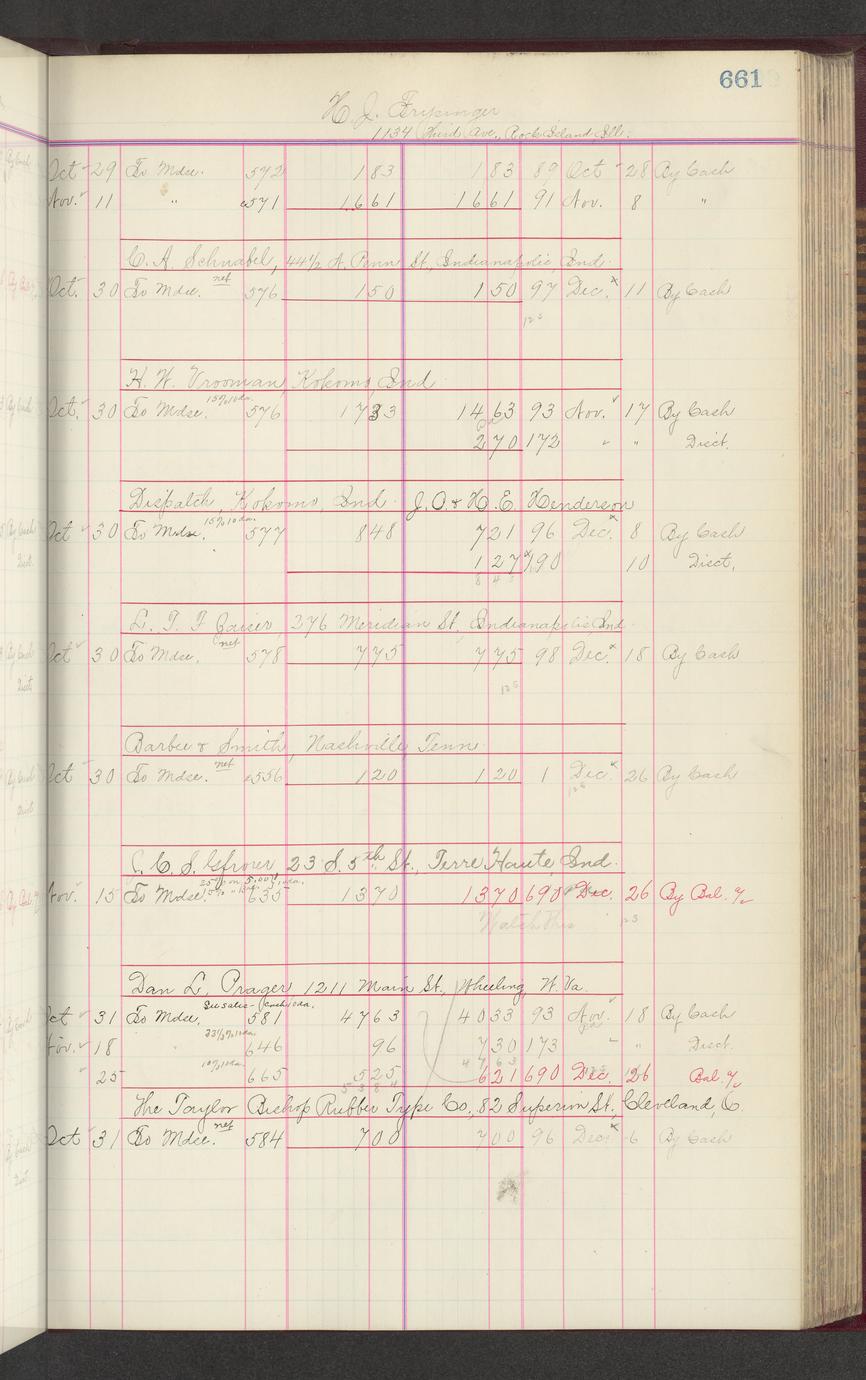 661
H. J. Fripinger
1134 Third Ave., Rock Island, Ill.
Oct 29 To Mdse. 572 1 83 1 83 89 Oct 28 By Cash
Nov. 11 " 571 16 61 16 61 91 Nov. 8 "
C. A. Schnabel, 44½ N. Penn St., Indianapolis, Ind.
Oct. 30 To Mdse. net 576 1 50 1 50 97 Dec. 11 By Cash
H. W. Vrooman, Kokomo, Ind.
Oct. 30 To Mdse. 15% 10 da. 576 17 33 14 63 93 Nov. 17 By Cash
2 70 172 " " Disct.
Dispatch, Kokomo, Ind. J. O. & H. E. Henderson
Oct 30 To Mdse. 15% 10 da. 577 8 48 7 21 96 Dec. 8 By Cash
1 27 190 10 Disct.
8 4 8
L. T. F. Gaiser, 276 Meridian St., Indianapolis Ind.
Oct 30 To Mdse. net 578 7 75 7 75 98 Dec. 18 By Cash
Barbee & Smith, Nashville Tenn.
Oct 30 To Mdse. net 556 1 20 1 20 1 Dec. 26 By Cash
C. S. Gfrorer 23 S. 5th St., Terre Haute, Ind.
Nov. 15 To Mdse. 635 13 70 13 70 690 Dec. 26 By Bal. %
Watch This
Dan L. Prager 1211 Main St., Wheeling, W. Va.
Oct 31 To Mdse. 581 47 63 40 33 93 Nov. 18 By Cash
Nov. 18 " 33⅓% 10 da. 646 96 7 30 173 " " Disct.
4 7 6 3
" 25 10% 10 da. 665 5 25 6 21 690 Dec. 26 Bal. %
5 3 8 4
The Taylor Bishop Rubber Type Co., 82 Superior St., Cleveland, O.
Oct 31 To Mdse. net 584 7 00 7 00 96 Dec. 6 By Cash